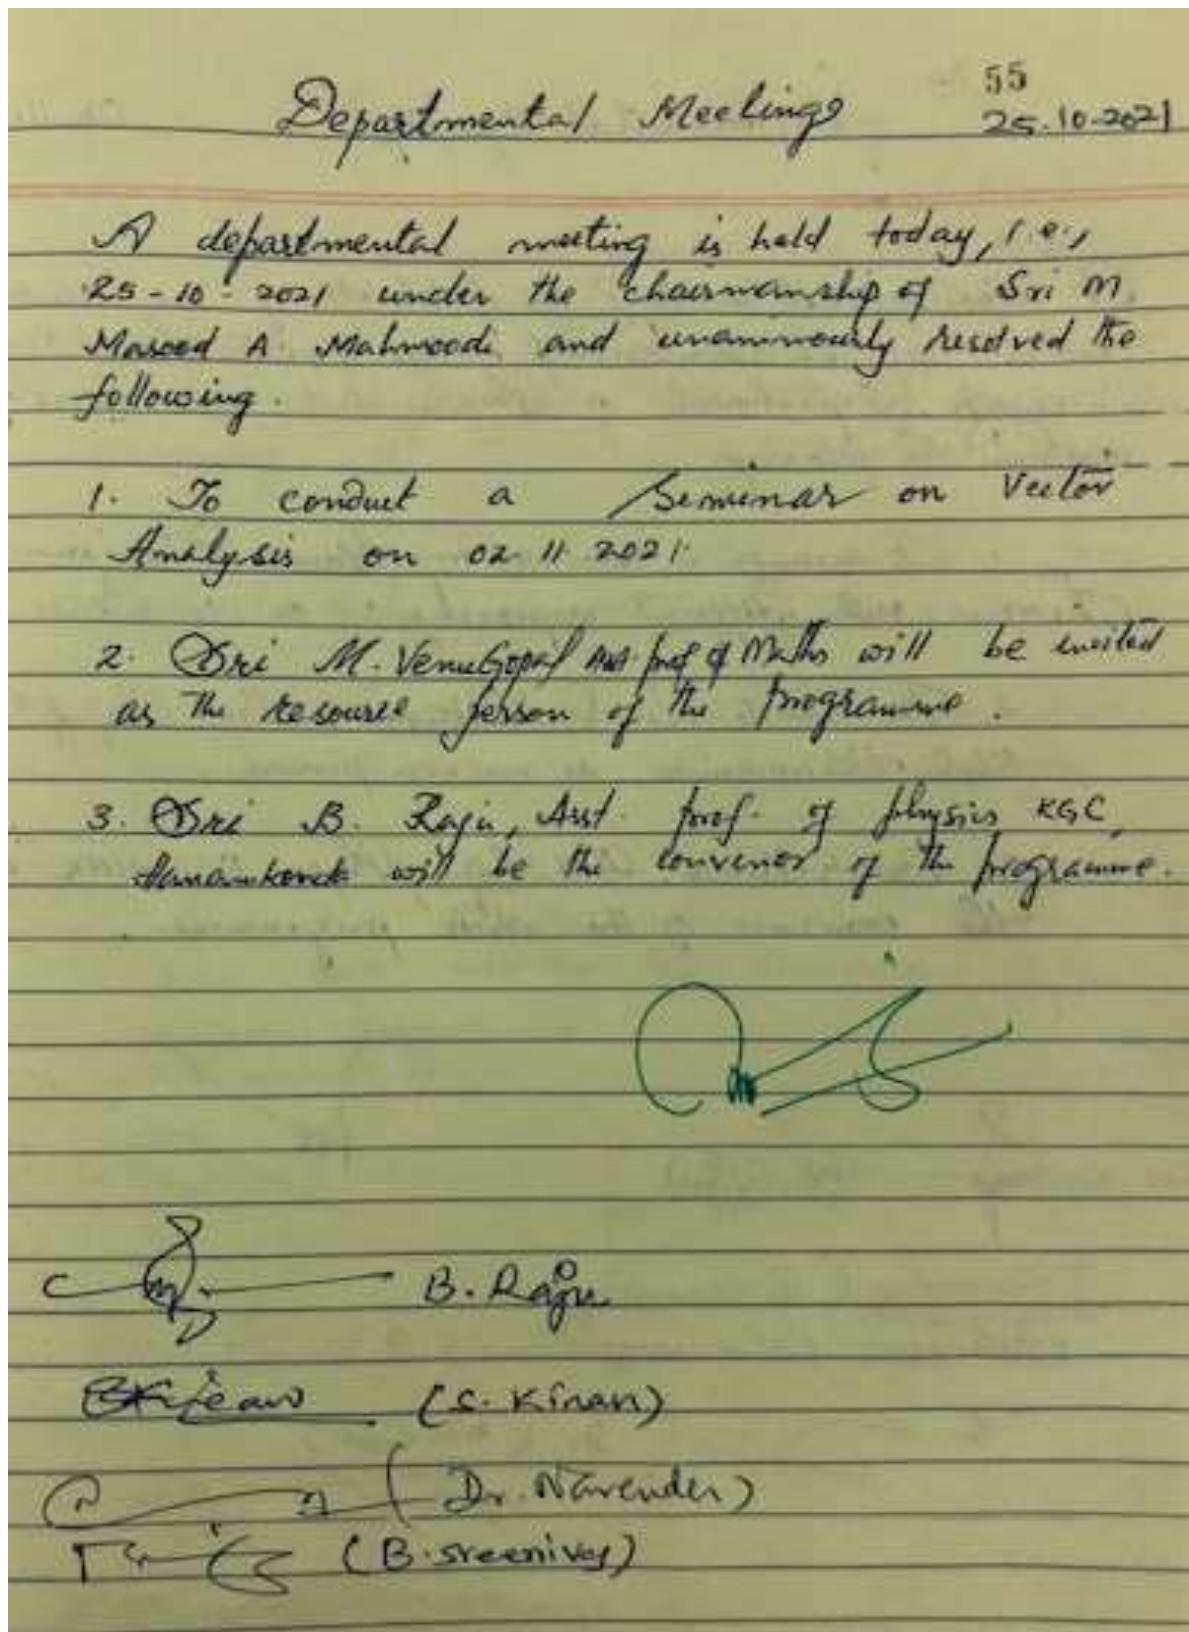 55
Departmental Meeting
25.10.2021
A departmental meeting is held today, i.e.,
25-10-2021 under the chairmanship of Sri M
Masood A Mahmoodi and unanimously resolved the
following.
1. To conduct a Seminar on Vector
Analysis on 02.11.2021.
2. Sri M. VenuGopal Asst. prof of Maths will be invited
as the resource person of the programme.
3. Sri B. Raju, Asst. prof. of physics KGC,
Hanamkonda will be the convenor of the programme.
B. Raju
(S. Kiran)
(Dr. Narender)
(B. Sreenivas)